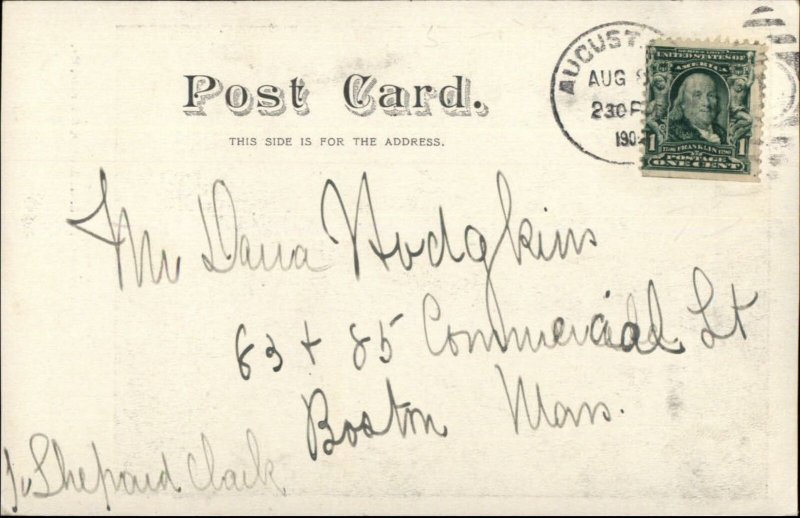 Post Card.
THIS SIDE IS FOR THE ADDRESS.
AUGUST
AUG 8
230 P
190
SERIES 1902
UNITED STATES OF
AMERICA
1 FRANKLIN 1
POSTAGE
ONE CENT
Mr Dana Hodgkins
83 + 85 Commercial St
Boston Mass.
Shepard Clark